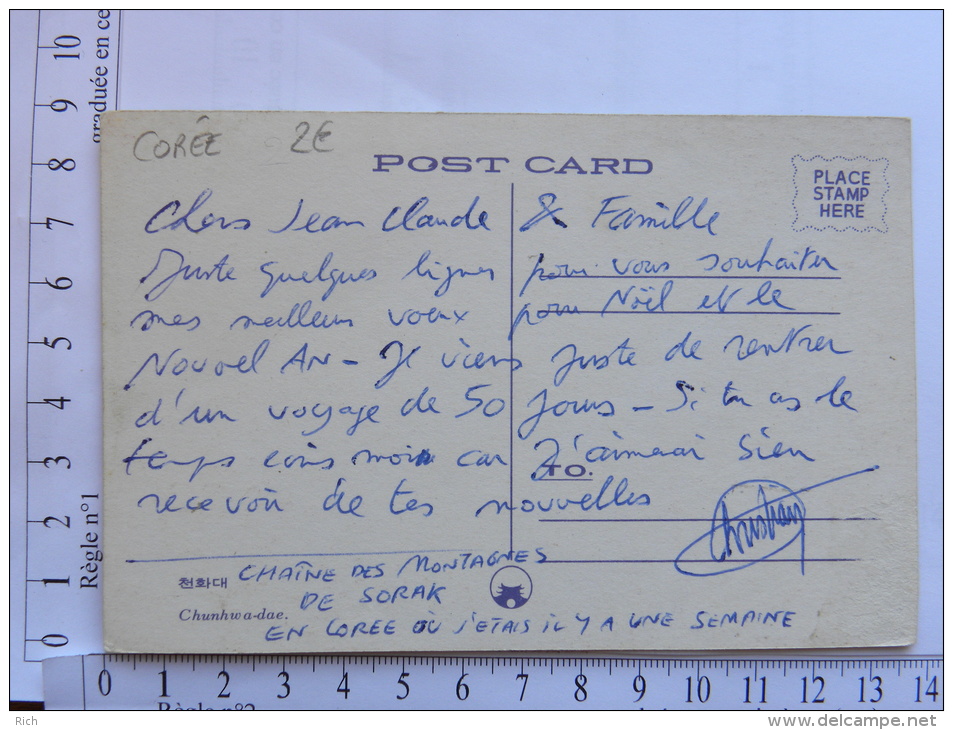 10
9
8
7
6
5
4
3
2
1
0
graduée en ce
Règle n°1
CORÉE 2€
POST CARD
PLACE
STAMP
HERE
Chers Jean Claude & Famille
Juste quelques lignes pour vous souhaiter
mes meilleurs voeux pour Noël et le
Nouvel AN - Je viens juste de rentrer
d'un voyage de 50 jours - Si tu as le
temps écris moi car J'aimerai bien
TO.
recevoir de tes nouvelles
Christian
천화대
Chunhwa-dae.
CHAÎNE DES MONTAGNES
DE SORAK
EN COREE OÙ J'ETAIS IL Y A UNE SEMAINE
0 1 2 3 4 5 6 7 8 9 10 11 12 13 14
Règle n°2
Rich
www.delcampe.net